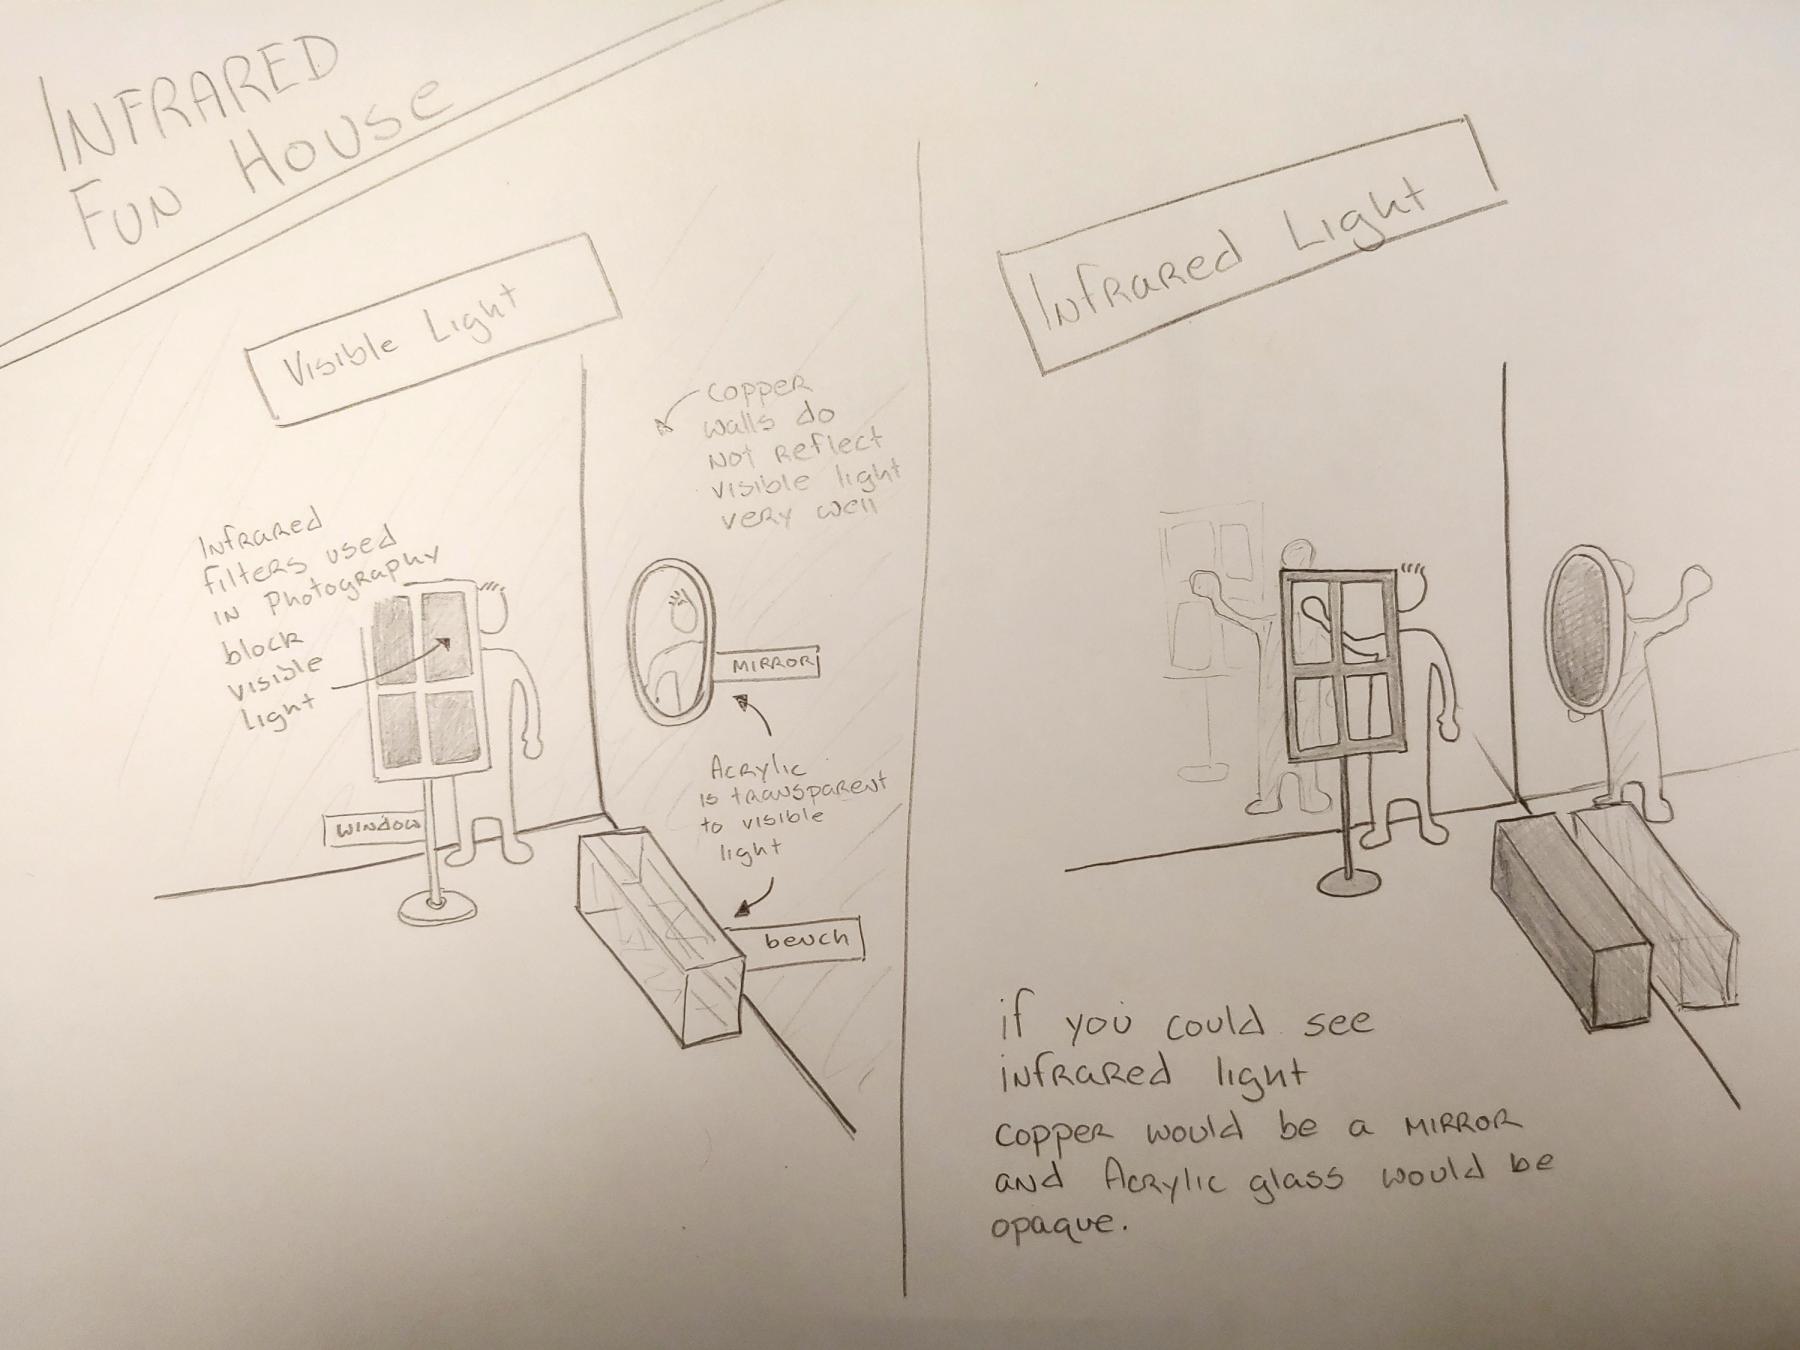 INFRARED
FUN HOUSE
Visible Light
Copper
walls do
not reflect
visible light
very well
Infrared
filters used
in Photography
block
visible
light
MIRROR
Acrylic
is transparent
to visible
light
window
bench
Infrared Light
if you could see
infrared light
copper would be a MIRROR
and Acrylic glass would be
opaque.